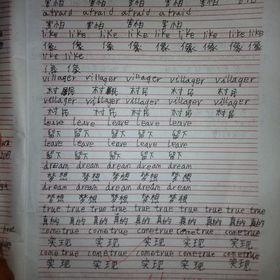 害怕 害怕 害怕 害怕
afraid afraid afraid afraid
害怕 害怕 害怕 害怕
like like like like like like like like
像 像 像 像 像 像 像 像
like like
像 像
villager villager villager villager
村民 村民 村民 村民
villager villager villager villager
村民 村民 村民 村民
leave leave leave leave leave
留下 留下 留下 留下
leave leave leave leave leave
留下 留下 留下 留下
dream dream dream dream dream
梦想 梦想 梦想 梦想 梦想
dream dream dream dream dream
梦想 梦想 梦想 梦想 梦想
true true true true true true true true
真的 真的 真的 真的 真的 真的 真的
come true come true come true come true come true
实现 实现 实现 实现 实现
come true come true come true come true come true
实现 实现 实现 实现 实现